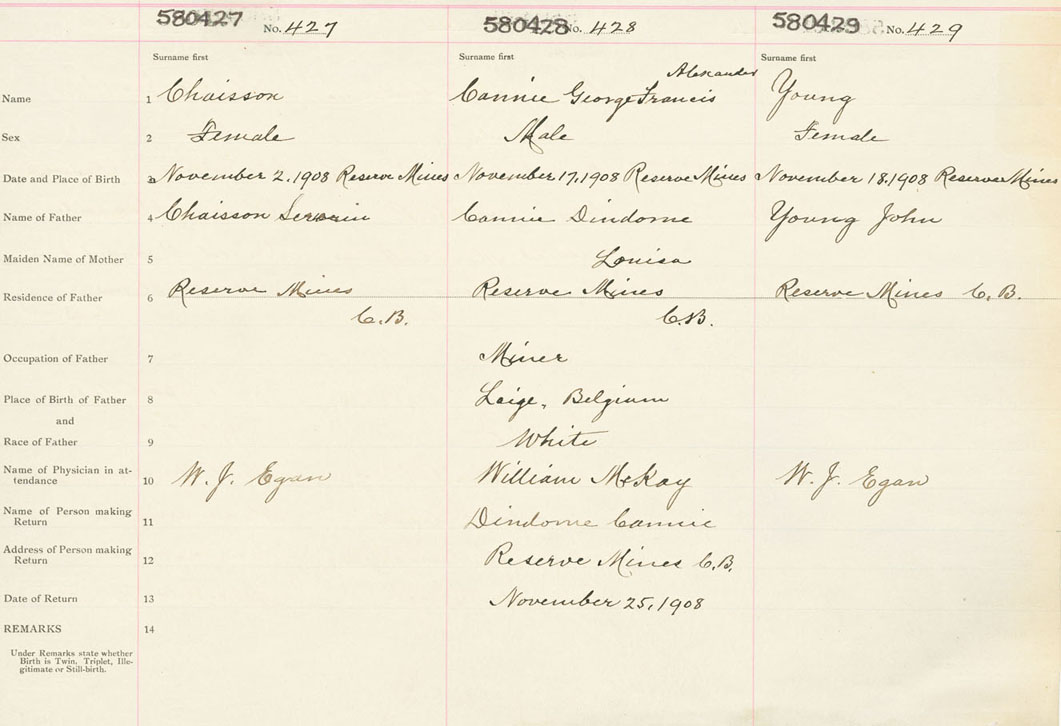 580427 No. 427 580428 No. 428 580429 No. 429
Surname first Surname first Surname first
Alexander
Name 1 Chaisson Cannie George Francis Young
Sex 2 Female Male Female
Date and Place of Birth 3 November 2, 1908 Reserve Mines November 17, 1908 Reserve Mines November 18, 1908 Reserve Mines
Name of Father 4 Chaisson Cannie Dindome Young John
Maiden Name of Mother 5 Louisa
Residence of Father 6 Reserve Mines Reserve Mines Reserve Mines C. B.
C. B. C. B.
Occupation of Father 7 Miner
Place of Birth of Father 8 Laige, Belgium
and
Race of Father 9 White
Name of Physician in at-
tendance 10 W. J. Egan William McKay W. J. Egan
Name of Person making
Return 11 Dindome Cannie
Address of Person making
Return 12 Reserve Mines C. B.
Date of Return 13 November 25, 1908
REMARKS 14
Under Remarks state whether
Birth is Twin, Triplet, Ille-
gitimate or Still-birth.